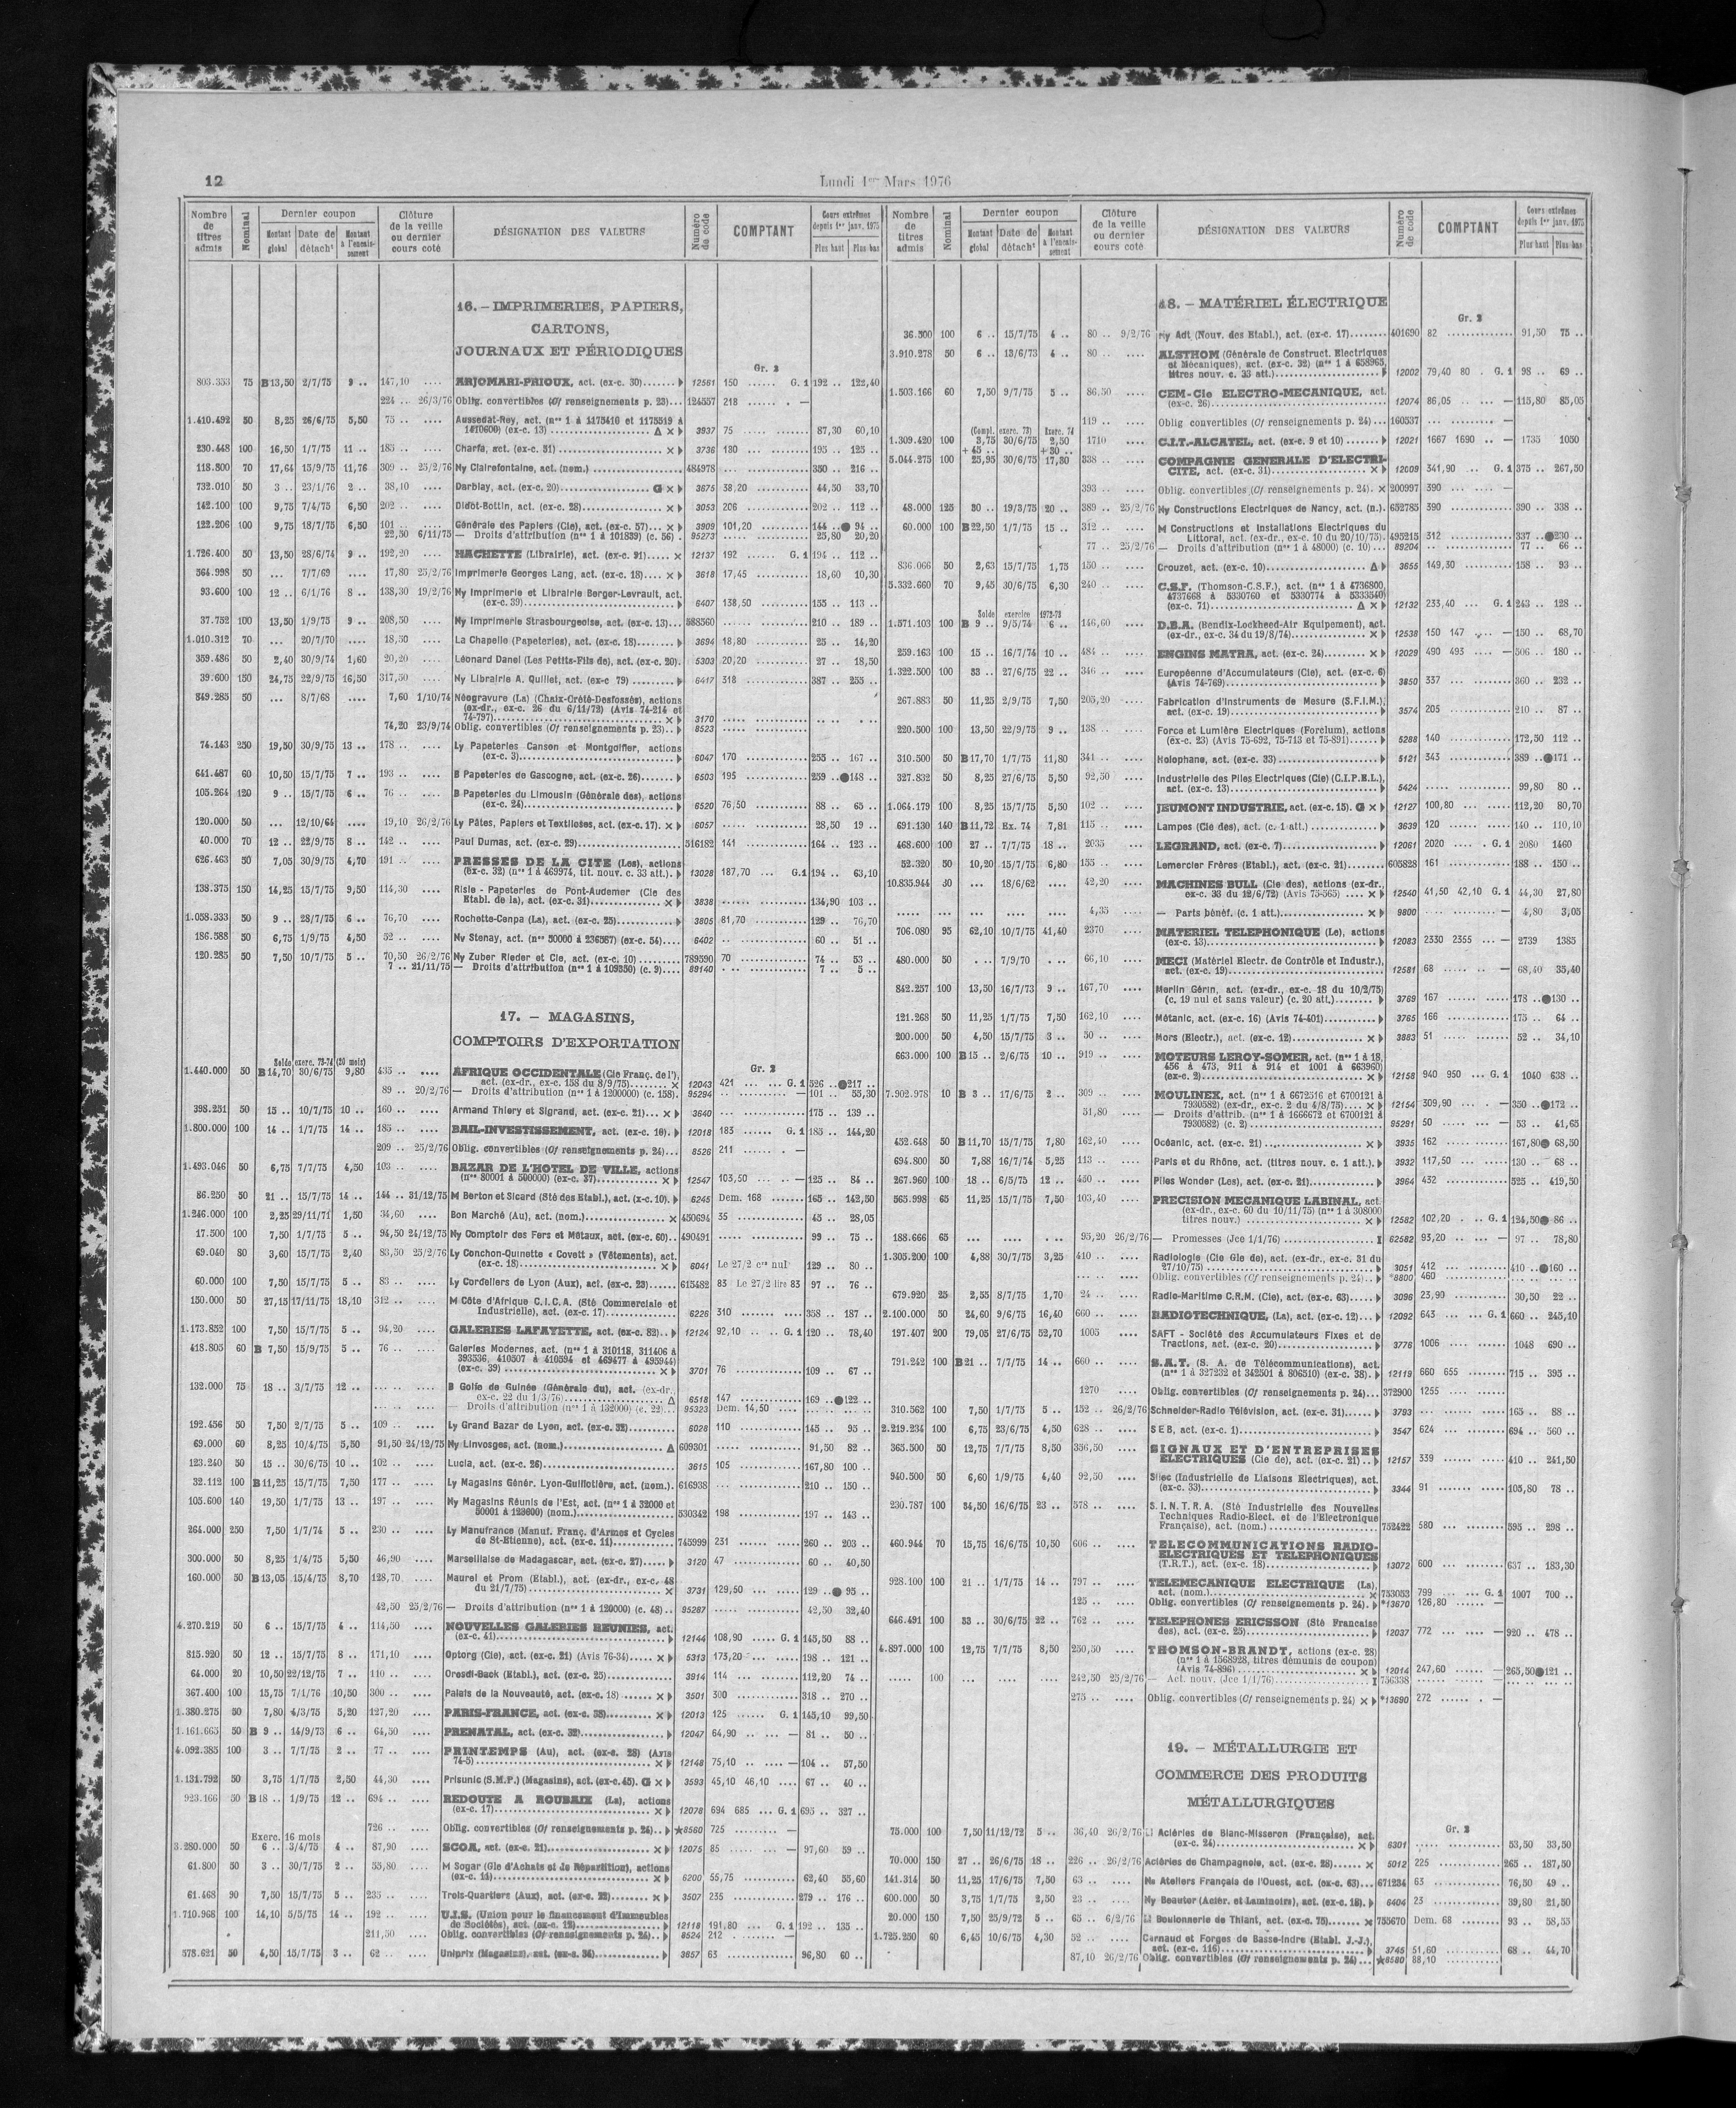 12
Lundi 1er Mars 1976
Nombre de titres admis | Nominal | Dernier coupon | Montant global | Date de détacht | Montant à l'encaissement | Clôture de la veille ou dernier cours coté | DÉSIGNATION DES VALEURS | Numéro de code | COMPTANT | Cours extrêmes depuis 1er janv. 1975 | Plus haut | Plus bas
16. - IMPRIMERIES, PAPIERS,
CARTONS,
JOURNAUX ET PÉRIODIQUES
Gr. 2
803.353 75 B 13,50 2/7/75 9 .. 147,10 .... ARJOMARI-PRIOUX, act. (ex-c. 30) 12561 150 ...... G. 1 192 .. 122,40
224 .. 26/3/76 Oblig. convertibles (Cf renseignements p. 23)... 124557 218 ...... . —
1.410.492 50 8,25 26/6/75 5,50 75 .. .... Aussedat-Rey, act. (nos 1 à 1175410 et 1175519 à
1410600) (ex-c. 13) Δ × 3937 75 87,30 60,10
230.448 100 16,50 1/7/75 11 .. 185 .. .... Charfa, act. (ex-c. 51) × 3736 180 195 .. 125 ..
118.800 70 17,64 15/9/75 11,76 309 .. 25/2/76 Ny Clairefontaine, act. (nom.) 484978 350 .. 216 ..
732.010 50 3 .. 23/1/76 2 .. 38,10 .... Darblay, act. (ex-c. 20) G × 3675 38,20 44,50 33,70
142.100 100 9,75 7/4/75 6,50 202 .. .... Didot-Bottin, act. (ex-c. 28) × 3053 206 202 .. 112 ..
122.206 100 9,75 18/7/75 6,50 101 .. .... Générale des Papiers (Cie), act. (ex-c. 57)... × 3909 101,20 144 .. ● 94 ..
22,50 6/11/75 — Droits d'attribution (nos 1 à 101839) (c. 56) . 95273 25,80 20,20
1.726.400 50 13,50 28/6/74 9 .. 192,20 .... HACHETTE (Librairie), act. (ex-c. 91)..... × 12137 192 ...... G. 1 194 .. 112 ..
564.998 50 ... 7/7/69 .... 17,80 25/2/76 Imprimerie Georges Lang, act. (ex-c. 18).... × 3618 17,45 18,60 10,30
93.600 100 12 .. 6/1/76 8 .. 138,30 19/2/76 Ny Imprimerie et Librairie Berger-Levrault, act.
(ex-c. 39) 6407 138,50 155 .. 113 ..
37.752 100 13,50 1/9/75 9 .. 208,50 .... Ny Imprimerie Strasbourgeoise, act. (ex-c. 13)... 588560 210 .. 189 ..
1.010.312 70 ... 20/7/70 .... 18,50 .... La Chapelle (Papeteries), act. (ex-c. 18) 3694 18,80 25 .. 14,20
359.486 50 2,40 30/9/74 1,60 20,20 .... Léonard Danel (Les Petits-Fils de), act. (ex-c. 20). 5303 20,20 27 .. 18,50
39.600 150 24,75 22/9/75 16,50 317,50 .... Ny Librairie A. Quillet, act. (ex-c 79) 6417 318 387 .. 255 ..
849.285 50 ... 8/7/68 .... 7,60 1/10/74 Néogravure (La) (Chaix-Crété-Desfossés), actions
(ex-dr., ex-c. 26 du 6/11/72) (Avis 74-214 et
74-797) × 3170
74,20 23/9/74 Oblig. convertibles (Cf renseignements p. 23).. 8523
74.143 250 19,50 30/9/75 13 .. 178 .. .... Ly Papeteries Canson et Montgolfier, actions
(ex-c. 3) 6047 170 255 .. 167 ..
641.487 60 10,50 15/7/75 7 .. 193 .. .... B Papeteries de Gascogne, act. (ex-c. 26) 6503 195 259 .. ●148 ..
105.264 120 9 .. 15/7/75 6 .. 76 .. .... B Papeteries du Limousin (Générale des), actions
(ex-c. 24) 6520 76,50 88 .. 65 ..
120.000 50 ... 12/10/64 .... 19,10 26/2/76 Ly Pâtes, Papiers et Textiloses, act. (ex-c. 17). × 6057 28,50 19 ..
40.000 70 12 .. 22/9/75 8 .. 142 .. .... Paul Dumas, act. (ex-c. 29) 516182 141 164 .. 123 ..
626.463 50 7,05 30/9/75 4,70 191 .. .... PRESSES DE LA CITE (Les), actions
(ex-c. 32) (nos 1 à 469974, tit. nouv. c. 33 att.). 13028 187,70 ... G.1 194 .. 63,10
138.375 150 14,25 15/7/75 9,50 114,30 .... Risle - Papeteries de Pont-Audemer (Cie des
Etabl. de la), act. (ex-c. 31) × 3838 134,90 103 ..
1.058.333 50 9 .. 28/7/75 6 .. 76,70 .... Rochette-Cenpa (La), act. (ex-c. 25) 3805 81,70 129 .. 76,70
186.588 50 6,75 1/9/75 4,50 52 .. .... Ny Stenay, act. (nos 50000 à 236587) (ex-c. 54).... 6402 60 .. 51 ..
120.285 50 7,50 10/7/75 5 .. 70,50 26/2/76 Ny Zuber Rieder et Cie, act. (ex-c. 10) 789590 70 74 .. 53 ..
7 .. 21/11/75 — Droits d'attribution (nos 1 à 109350) (c. 9).... 89140 7 .. 5 ..
17. - MAGASINS,
COMPTOIRS D'EXPORTATION
Gr. 2
Solde exerc. 73-74 (20 mois)
1.440.000 50 B 14,70 30/6/75 9,80 435 .. .... AFRIQUE OCCIDENTALE (Cie Franç. de l'),
act. (ex-dr., ex-c. 158 du 8/9/75) × 12043 421 ... ... G. 1 526 .. ●217 ..
89 .. 20/2/76 — Droits d'attribution (nos 1 à 1200000) (c. 158). 95294 — 101 .. 55,30
398.251 50 15 .. 10/7/75 10 .. 160 .. .... Armand Thiery et Sigrand, act. (ex-c. 21)... × 3640 175 .. 139 ..
1.800.000 100 14 .. 1/7/75 14 .. 185 .. .... BAIL-INVESTISSEMENT, act. (ex-c. 10). 12018 183 ...... G. 1 185 .. 144,20
209 .. 25/2/76 Oblig. convertibles (Cf renseignements p. 24)... 8526 211 ...... . —
1.493.046 50 6,75 7/7/75 4,50 103 .. .... BAZAR DE L'HOTEL DE VILLE, actions
(nos 80001 à 500000) (ex-c. 37) × 12547 103,50 — 125 .. 84 ..
86.250 50 21 .. 15/7/75 14 .. 144 .. 31/12/75 M Berton et Sicard (Sté des Etabl.), act. (x-c. 10). 6245 Dem. 168 165 .. 142,50
1.246.000 100 2,25 29/11/71 1,50 34,60 .... Bon Marché (Au), act. (nom.) × 450694 35 45 .. 28,05
17.500 100 7,50 1/7/75 5 .. 94,50 24/12/75 Ny Comptoir des Fers et Métaux, act. (ex-c. 60).. 490491 99 .. 75 ..
69.040 80 3,60 15/7/75 2,40 83,50 25/2/76 Ly Conchon-Quinette « Covett » (Vêtements), act.
(ex-c. 18) × 6041 Le 27/2 crs nul 129 .. 80 ..
60.000 100 7,50 15/7/75 5 .. 83 .. .... Ly Cordeliers de Lyon (Aux), act. (ex-c. 23) 615482 83 Le 27/2 lire 83 97 .. 76 ..
150.000 50 27,15 17/11/75 18,10 312 .. .... M Côte d'Afrique C.I.C.A. (Sté Commerciale et
Industrielle), act. (ex-c. 17) 6226 310 358 .. 187 ..
1.173.852 100 7,50 15/7/75 5 .. 94,20 .... GALERIES LAFAYETTE, act. (ex-c. 82).. 12124 92,10 .. .. G. 1 120 .. 78,40
418.805 60 B 7,50 15/9/75 5 .. 76 .. .... Galeries Modernes, act. (nos 1 à 310118, 311406 à
393536, 410507 à 410594 et 469477 à 495944)
(ex-c. 39) × 3701 76 109 .. 67 ..
132.000 75 18 .. 3/7/75 12 .. B Golfe de Guinée (Générale du), act. (ex-dr.,
ex-c. 22 du 1/3/76) Δ 6518 147 169 .. ●122 ..
— Droits d'attribution (nos 1 à 132000) (c. 22)... 95323 Dem. 14,50
192.456 50 7,50 2/7/75 5 .. 109 .. .... Ly Grand Bazar de Lyon, act. (ex-c. 32) 6028 110 145 .. 95 ..
69.000 60 8,25 10/4/75 5,50 91,50 24/12/75 Ny Linvosges, act. (nom.) Δ 609301 91,50 82 ..
123.240 50 15 .. 30/6/75 10 .. 102 .. .... Lucia, act. (ex-c. 26) 3615 105 167,80 100 ..
32.112 100 B 11,25 15/7/75 7,50 177 .. .... Ly Magasins Génér. Lyon-Guillotière, act. (nom.). 616938 210 .. 150 ..
105.600 140 19,50 1/7/75 13 .. 197 .. .... Ny Magasins Réunis de l'Est, act. (nos 1 à 32000 et
50001 à 123600) (nom.) 530342 198 197 .. 143 ..
264.000 250 7,50 1/7/74 5 .. 230 .. .... Ly Manufrance (Manuf. Franç. d'Armes et Cycles
de St-Etienne), act. (ex-c. 11) 745999 231 260 .. 203 ..
300.000 50 8,25 1/4/75 5,50 46,90 .... Marseillaise de Madagascar, act. (ex-c. 27) 3120 47 60 .. 40,50
160.000 50 B 13,05 15/4/75 8,70 128,70 .... Maurel et Prom (Etabl.), act. (ex-dr., ex-c. 48
du 21/7/75) × 3731 129,50 129 .. ● 95 ..
42,50 25/2/76 — Droits d'attribution (nos 1 à 120000) (c. 48).. 95267 42,50 32,40
4.270.219 50 6 .. 15/7/75 4 .. 114,50 .... NOUVELLES GALERIES REUNIES, act.
(ex-c. 41) 12144 108,90 ..... G. 1 145,50 88 ..
815.920 50 12 .. 15/7/75 8 .. 171,10 .... Optorg (Cie), act. (ex-c. 21) (Avis 76-34) × 5313 173,20 198 .. 121 ..
64.000 20 10,50 22/12/75 7 .. 110 .. .... Orosdi-Back (Etabl.), act. (ex-c. 25) 3914 114 112,20 74 ..
367.400 100 15,75 7/1/76 10,50 300 .. .... Palais de la Nouveauté, act. (ex-c. 18) × 3501 300 318 .. 270 ..
1.380.275 50 7,80 4/3/75 5,20 127,20 .... PARIS-FRANCE, act. (ex-c. 58) × 12013 125 ...... G. 1 145,10 99,50
1.161.665 50 B 9 .. 14/9/73 6 .. 64,50 .... PRENATAL, act. (ex-c. 32) 12047 64,90 — 81 .. 50 ..
4.092.385 100 3 .. 7/7/75 2 .. 77 .. .... PRINTEMPS (Au), act. (ex-c. 28) (Avis
74-5) × 12148 75,10 — 104 .. 57,50
1.131.792 50 3,75 1/7/75 2,50 44,30 .... Prisunic (S.M.P.) (Magasins), act. (ex-c. 45). G × 3593 45,10 46,10 67 .. 40 ..
923.166 50 B 18 .. 1/9/75 12 .. 694 .. .... REDOUTE A ROUBAIX (La), actions
(ex-c. 17) × 12078 694 685 ... G. 1 695 .. 327 ..
726 .. .... Oblig. convertibles (Cf renseignements p. 24).. ★8560 725 —
Exerc. 16 mois
3.280.000 50 6 .. 3/4/75 4 .. 87,90 .... SCOA, act. (ex-c. 21) × 12075 85 — 97,60 59 ..
61.800 50 3 .. 30/7/75 2 .. 55,80 .... M Sogar (Gle d'Achats et de Répartition), actions
(ex-c. 11) × 6200 55,75 62,40 55,60
61.468 90 7,50 15/7/75 5 .. 235 .. .... Trois-Quartiers (Aux), act. (ex-c. 22) × 3507 235 279 .. 176 ..
1.710.968 100 14,10 5/5/75 14 .. 192 .. .... U.I.S. (Union pour le financement d'Immeubles
de Sociétés), act. (ex-c. 12) 12118 191,80 ... G. 1 192 .. 135 ..
211,50 .... Oblig. convertibles (Cf renseignements p. 24).. 8524 212 —
578.621 50 4,50 15/7/75 3 .. 62 .. .... Uniprix (Magasins), act. (ex-c. 36) 3657 63 96,80 60 ..
Nombre de titres admis | Nominal | Dernier coupon | Montant global | Date de détacht | Montant à l'encaissement | Clôture de la veille ou dernier cours coté | DÉSIGNATION DES VALEURS | Numéro de code | COMPTANT | Cours extrêmes depuis 1er janv. 1975 | Plus haut | Plus bas
18. - MATÉRIEL ÉLECTRIQUE
Gr. 2
36.500 100 6 .. 15/7/75 4 .. 80 .. 9/2/76 Ny Adt (Nouv. des Etabl.), act. (ex-c. 17) 401690 82 91,50 75 ..
3.910.278 50 6 .. 13/6/73 4 .. 80 .. .... ALSTHOM (Générale de Construct. Electriques
et Mécaniques), act. (ex-c. 32) (nos 1 à 658965,
titres nouv. c. 33 att.) 12002 79,40 80 . G. 1 98 .. 69 ..
1.503.166 60 7,50 9/7/75 5 .. 86,50 .... CEM-Cie ELECTRO-MECANIQUE, act.
(ex-c. 26) 12074 86,05 — 115,80 85,05
119 .. .... Oblig. convertibles (Cf renseignements p. 24)... 160537 —
(Compl. exerc. 73) Exerc. 74
1.309.420 100 3,75 30/6/75 2,50 1710 .... C.I.T.-ALCATEL, act. (ex-c. 9 et 10) 12021 1667 1690 .. — 1735 1050
+ 45 .. + 30 ..
5.044.275 100 25,95 30/6/75 17,30 338 .. .... COMPAGNIE GENERALE D'ELECTRI-
CITE, act. (ex-c. 31) × 12009 341,90 .. G. 1 375 .. 267,50
393 .. .... Oblig. convertibles (Cf renseignements p. 24). × 200997 390 —
48.000 125 30 .. 19/3/75 20 .. 389 .. 25/2/76 Ny Constructions Electriques de Nancy, act. (n.). 652785 390 390 .. 338 ..
60.000 100 B 22,50 1/7/75 15 .. 312 .. .... M Constructions et Installations Electriques du
Littoral, act. (ex-dr., ex-c. 10 du 20/10/75). 495215 312 337 .. ●230 ..
77 .. 25/2/76 — Droits d'attribution (nos 1 à 48000) (c. 10)... 89204 77 .. 66 ..
836.066 50 2,63 15/7/75 1,75 150 .. .... Crouzet, act. (ex-c. 10) Δ 3655 149,50 158 .. 93 ..
5.332.660 70 9,45 30/6/75 6,30 240 .. .... C.S.F. (Thomson-C.S.F.), act. (nos 1 à 4736800,
4737668 à 5330760 et 5330774 à 5333540)
(ex-c. 71) Δ × 12132 233,40 ... G. 1 243 .. 128 ..
Solde exercice 1972-73
1.571.103 100 B 9 .. 9/5/74 6 .. 146,60 .... D.B.A. (Bendix-Lockheed-Air Equipement), act.
(ex-dr., ex-c. 34 du 19/8/74) × 12538 150 147 — 150 .. 68,70
259.163 100 15 .. 16/7/74 10 .. 484 .. .... ENGINS MATRA, act. (ex-c. 24) × 12029 490 493 — 506 .. 180 ..
1.322.500 100 33 .. 27/6/75 22 .. 346 .. .... Européenne d'Accumulateurs (Cie), act. (ex-c. 6)
(Avis 74-769) 3850 337 360 .. 232 ..
267.883 50 11,25 2/9/75 7,50 205,20 .... Fabrication d'Instruments de Mesure (S.F.I.M.),
act. (ex-c. 19) 3574 205 210 .. 87 ..
220.500 100 13,50 22/9/75 9 .. 138 .. .... Force et Lumière Electriques (Forclum), actions
(ex-c. 23) (Avis 75-692, 75-713 et 75-891) 5288 140 172,50 112 ..
310.500 50 B 17,70 1/7/75 11,80 341 .. .... Holophane, act. (ex-c. 33) 5121 343 389 .. ●171 ..
327.832 50 8,25 27/6/75 5,50 92,50 .... Industrielle des Piles Electriques (Cie) (C.I.P.E.L.),
act. (ex-c. 13) 5424 99,80 80 ..
1.064.179 100 8,25 15/7/75 5,50 102 .. .... JEUMONT INDUSTRIE, act. (ex-c. 15). G × 12127 100,80 112,20 80,70
691.130 140 B 11,72 Ex. 74 7,81 115 .. .... Lampes (Cie des), act. (c. 1 att.) 3639 120 140 .. 110,10
468.600 100 27 .. 7/7/75 18 .. 2035 .... LEGRAND, act. (ex-c. 7) 12061 2020 .... . G. 1 2080 1460
52.320 50 10,20 15/7/75 6,80 155 .. .... Lemercier Frères (Etabl.), act. (ex-c. 21) 605828 161 188 .. 150 ..
10.835.944 30 ... 18/6/62 .... 42,20 .... MACHINES BULL (Cie des), actions (ex-dr.,
ex-c. 33 du 12/6/72) (Avis 75-565) .... × 12540 41,50 42,10 G. 1 44,30 27,80
..... ... .... .... .... 4,35 .... — Parts bénéf. (c. 1 att.) × 9800 — 4,80 3,05
706.080 95 62,10 10/7/75 41,40 2370 .... MATERIEL TELEPHONIQUE (Le), actions
(ex-c. 13) 12083 2330 2355 ... — 2739 1385
480.000 50 ... 7/9/70 .. 66,10 .... MECI (Matériel Electr. de Contrôle et Industr.),
act. (ex-c. 19) 12581 68 — 68,40 35,40
842.257 100 13,50 16/7/73 9 .. 167,70 .... Merlin Gérin, act. (ex-dr., ex-c. 18 du 10/2/75)
(c. 19 nul et sans valeur) (c. 20 att.) 3769 167 178 .. ●130 ..
121.268 50 11,25 1/7/75 7,50 162,10 .... Métanic, act. (ex-c. 16) (Avis 74-401) 3765 166 175 .. 64 ..
200.000 50 4,50 15/7/75 3 .. 50 .. .... Mors (Electr.), act. (ex-c. 12) × 3883 51 52 .. 34,10
663.000 100 B 15 .. 2/6/75 10 .. 919 .. .... MOTEURS LEROY-SOMER, act. (nos 1 à 18,
456 à 473, 911 à 914 et 1001 à 663960)
(ex-c. 2) × 12158 940 950 ... G. 1 1040 638 ..
7.902.978 10 B 3 .. 17/6/75 2 .. 309 .. .... MOULINEX, act. (nos 1 à 6672516 et 6700121 à
7930582) (ex-dr., ex-c. 2 du 4/8/75).... × 12154 309,90 — 350 .. ●172 ..
51,80 — Droits d'attrib. (nos 1 à 1666672 et 6700121 à
7930582) (c. 2) 95291 50 — 53 .. 41,65
452.648 50 B 11,70 15/7/75 7,80 162,40 .... Océanic, act. (ex-c. 21) × 3935 162 167,80● 68,50
694.800 50 7,88 16/7/74 5,25 113 .. .... Paris et du Rhône, act. (titres nouv. c. 1 att.). 3932 117,50 130 .. 68 ..
267.960 100 18 .. 6/5/75 12 .. 450 .. .... Piles Wonder (Les), act. (ex-c. 21) 3964 452 525 .. 419,50
565.998 65 11,25 15/7/75 7,50 103,40 .... PRECISION MECANIQUE LABINAL, act.
(ex-dr., ex-c. 60 du 10/11/75) (nos 1 à 308000
titres nouv.) × 12582 102,20 . .. G. 1 124,50● 86 ..
188.666 65 ... .... .... 95,20 26/2/76 — Promesses (Jce 1/1/76) I 62582 93,20 — 97 .. 78,80
1.305.200 100 4,88 30/7/75 3,25 410 .. .... Radiologie (Cie Gle de), act. (ex-dr., ex-c. 31 du
27/10/75) 3051 412 410 .. ●160 ..
Oblig. convertibles (Cf renseignements p. 24).. *8800 460
679.920 25 2,55 8/7/75 1,70 24 .. .... Radio-Maritime C.R.M. (Cie), act. (ex-c. 63) 3096 23,90 30,50 22 ..
2.100.000 50 24,60 9/6/75 16,40 660 .. .... RADIOTECHNIQUE, (La), act. (ex-c. 12)... 12092 643 ... G. 1 660 .. 245,10
197.407 200 79,05 27/6/75 52,70 1005 .... SAFT - Société des Accumulateurs Fixes et de
Tractions, act. (ex-c. 20) 3776 1006 1048 690 ..
791.242 100 B 21 .. 7/7/75 14 .. 660 .. .... S.A.T. (S. A. de Télécommunications), act.
(nos 1 à 327232 et 342501 à 806510) (ex-c. 38). 12119 660 655 715 .. 395 ..
1270 .... Oblig. convertibles (Cf renseignements p. 24)... 372900 1255
310.562 100 7,50 1/7/75 5 .. 152 .. 26/2/76 Schneider-Radio Télévision, act. (ex-c. 31) 3793 165 .. 88 ..
2.219.234 100 6,75 23/6/75 4,50 628 .. .... SEB, act. (ex-c. 1) 3547 624 694 .. 560 ..
365.500 50 12,75 7/7/75 8,50 336,50 .... SIGNAUX ET D'ENTREPRISES
ELECTRIQUES (Cie de), act. (ex-c. 21).. 12157 339 410 .. 241,50
940.500 50 6,60 1/9/75 4,40 92,50 .... Silec (Industrielle de Liaisons Electriques), act.
(ex-c. 33) 3344 91 105,80 78 ..
230.787 100 34,50 16/6/75 23 .. 578 .. .... S.I.N.T.R.A. (Sté Industrielle des Nouvelles
Techniques Radio-Elect. et de l'Electronique
Française), act. (nom.) 752422 580 595 .. 298 ..
460.944 70 15,75 16/6/75 10,50 606 .. .... TELECOMMUNICATIONS RADIO-
ELECTRIQUES ET TELEPHONIQUES
(T.R.T.), act. (ex-c. 18) 13072 600 637 .. 183,30
928.100 100 21 .. 1/7/75 14 .. 797 .. .... TELEMECANIQUE ELECTRIQUE (La),
act. (nom.) × 753053 799 ... G. 1 1007 700 ..
125 .. .... Oblig. convertibles (Cf renseignements p. 24). *13670 126,80 —
646.491 100 33 .. 30/6/75 22 .. 762 .. .... TELEPHONES ERICSSON (Sté Francaise
des), act. (ex-c. 25) 12037 772 — 920 .. 478 ..
4.897.000 100 12,75 7/7/75 8,50 250,50 .... THOMSON-BRANDT, actions (ex-c. 28)
(nos 1 à 1568928, titres démunis de coupon)
(Avis 74-896) × 12014 247,60 — 265,50●121 ..
..... 100 ... .... .... 242,50 25/2/76 — Act. nouv. (Jce 1/1/76) I 756338
275 .. .... Oblig. convertibles (Cf renseignements p. 24) × *13690 272 —
19. - MÉTALLURGIE ET
COMMERCE DES PRODUITS
MÉTALLURGIQUES
Gr. 2
75.000 100 7,50 11/12/72 5 .. 36,40 26/2/76 Ll Aciéries de Blanc-Misseron (Française), act.
(ex-c. 24) × 6301 53,50 33,50
70.000 150 27 .. 26/6/75 18 .. 226 .. 26/2/76 Aciéries de Champagnole, act. (ex-c. 28) × 5012 225 265 .. 187,50
141.314 50 11,25 17/6/75 7,50 63 .. .... Ns Ateliers Français de l'Ouest, act. (ex-c. 63)... 671234 63 76,50 49 ..
600.000 50 3,75 1/7/75 2,50 23 .. .... Ny Beautor (Aciér. et Laminoirs), act. (ex-c. 18). 6404 23 39,80 21,50
20.000 150 7,50 25/9/72 5 .. 65 .. 6/2/76 Ll Boulonnerie de Thiant, act. (ex-c. 75) × 755670 Dem. 68 93 .. 58,55
1.725.230 60 6,45 10/6/75 4,30 52 .. .... Carnaud et Forges de Basse-Indre (Etabl. J.-J.),
act. (ex-c. 116) 3745 51,60 68 .. 44,70
87,10 26/2/76 Oblig. convertibles (Cf renseignements p. 24)... ★8580 88,10